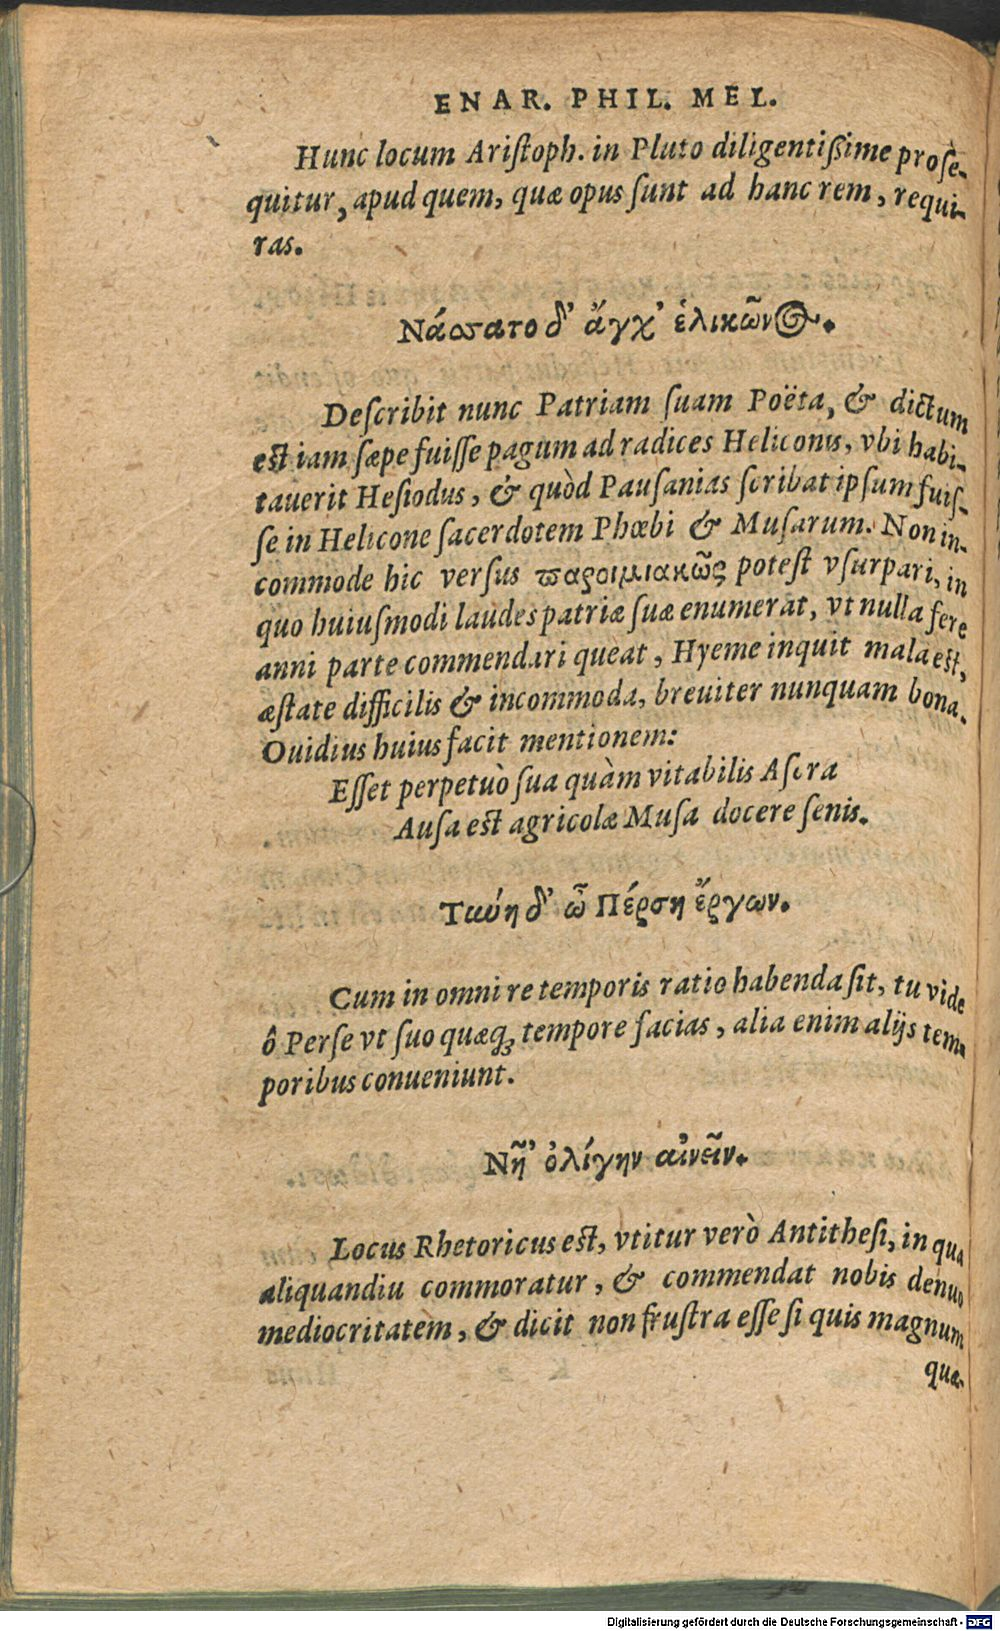 ENAR. PHIL. MEL.
Hunc locum Ariſtoph. in Pluto diligentißime proſe-
quitur, apud quem, quæ opus ſunt ad hanc rem, requi-
ras.
Νάσσατο δ' ἄγχ' ἑλικῶνος.
Deſcribit nunc Patriam ſuam Poëta, & dictum
est iam ſæpe fuiſſe pagum ad radices Heliconis, vbi habi-
tauerit Heſiodus, & quòd Pauſanias ſcribat ipſum fuiſ-
ſe in Helicone ſacerdotem Phœbi & Muſarum. Non in-
commode hic verſus παροιμιακῶς poteſt vſurpari, in
quo huiuſmodi laudes patriæ ſuæ enumerat, vt nulla fere
anni parte commendari queat, Hyeme inquit mala est,
æſtate difficilis & incommoda, breuiter nunquam bona.
Ouidius huius facit mentionem:
Eſſet perpetuò ſua quàm vitabilis Aſcra
Auſa est agricolæ Muſa docere ſenis.
Ταύη δ' ὦ Πέρση ἔργων.
Cum in omni re temporis ratio habenda ſit, tu vide
ô Perſe vt ſuo quæq; tempore facias, alia enim alijs tem-
poribus conueniunt.
Νῆ' ὀλίγην αἰνεῖν.
Locus Rhetoricus est, vtitur verò Antitheſi, in qua
aliquandiu commoratur, & commendat nobis denuo
mediocritatem, & dicit non fruſtra eſſe ſi quis magnum
quæ-
Digitalisierung gefördert durch die Deutsche Forschungsgemeinschaft - DFG